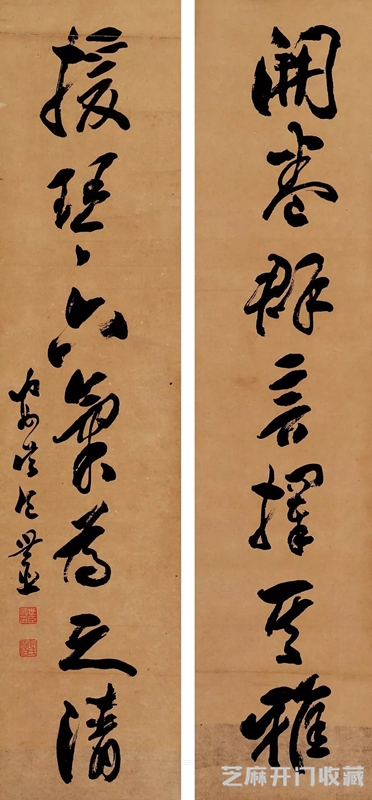 開卷群言擇其雅
援琴六氣為之清
芝麻开门收藏